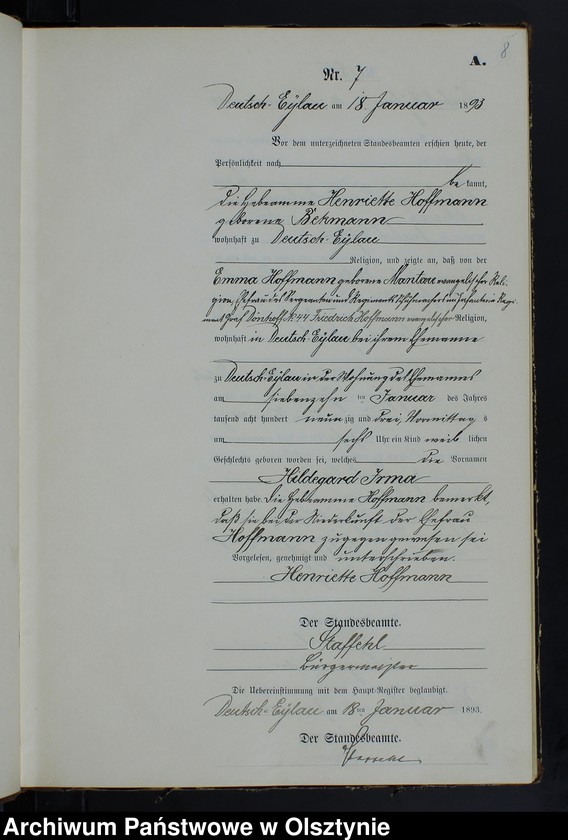 8
A.
Nr. 7
Deutsch-Eylau am 18. Januar 1893
Vor dem unterzeichneten Standesbeamten erschien heute, der
Persönlichkeit nach
be kannt,
die Hebeamme Henriette Hoffmann
geborene Bekmann
wohnhaft zu Deutsch-Eylau
Religion, und zeigte an, daß von der
Emma Hoffmann geborene Mantau evangelischer Reli-
gion, Ehefrau des Sergeanten und Regiments im Infanterie Regi
ment Graf Dönhoff N: 44 Friedrich Hoffmann evangelischer Religion,
wohnhaft in Deutsch-Eylau bei ihrem Ehemanne
zu Deutsch-Eylau in der Wohnung des Ehemanns
am siebenzehn ten Januar des Jahres
tausend acht hundert neun zig und drei, Vormittag s
um sechs Uhr ein Kind weib lichen
Geschlechts geboren worden sei, welches die Vornamen
Hildegard Irma
erhalten habe. Die Hebeamme Hoffmann bemerkt,
daß sie bei der Niederkunft der Ehefrau
Hoffmann zugegen gewesen sei
Vorgelesen, genehmigt und unterschrieben.
Henriette Hoffmann
Der Standesbeamte.
Staffehl
Bürgermeister
Die Uebereinstimmung mit dem Haupt-Register beglaubigt.
Deutsch-Eylau am 18ten Januar 1893.
Der Standesbeamte.
Archiwum Państwowe w Olsztynie